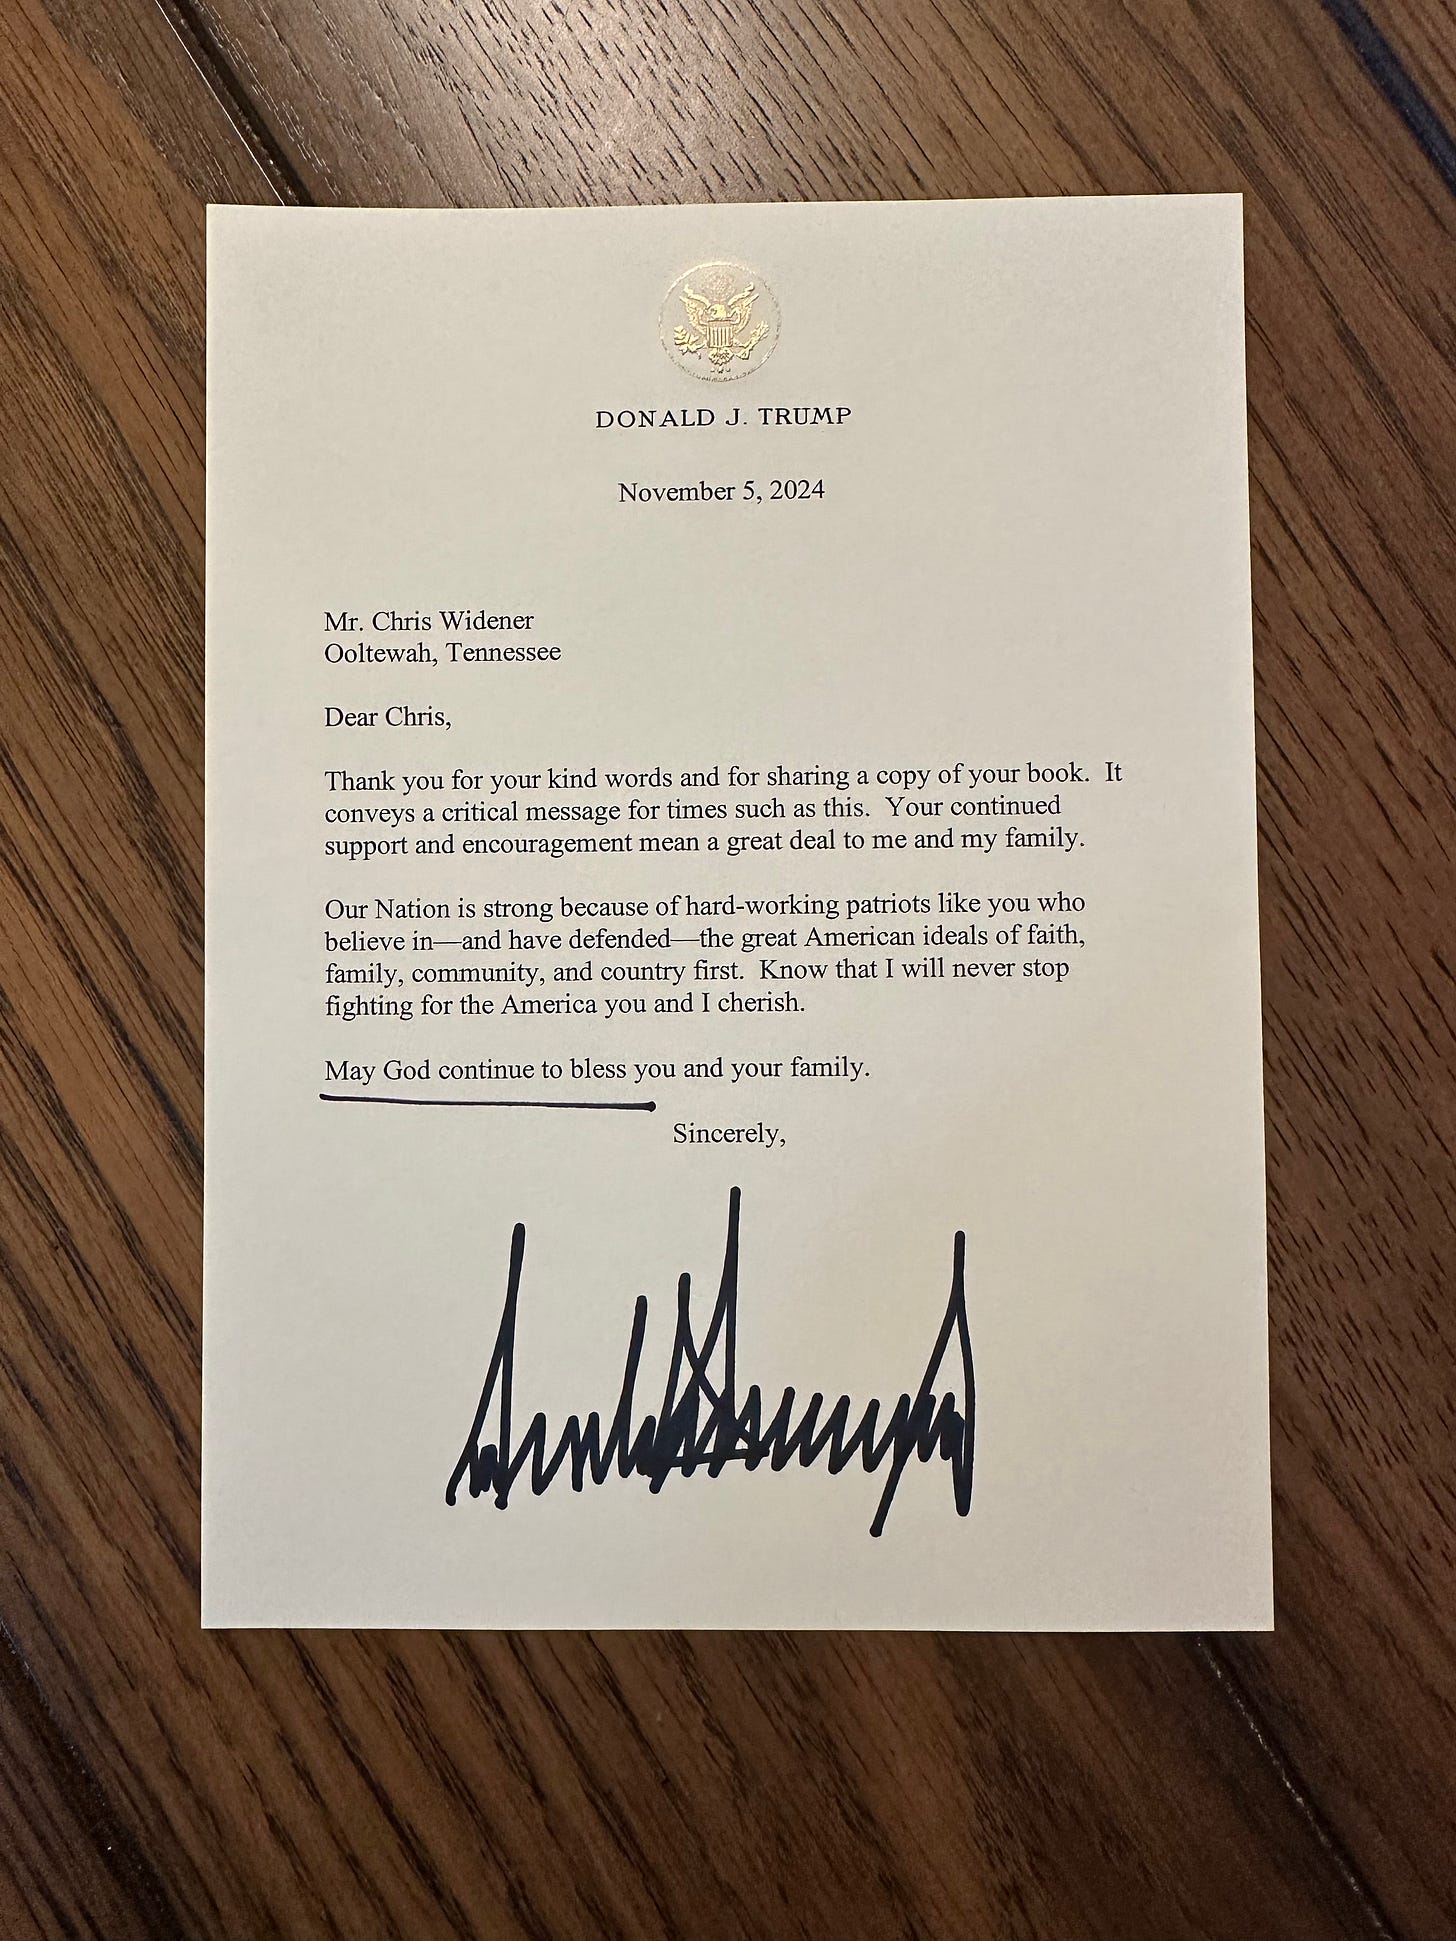 DONALD J. TRUMP
November 5, 2024
Mr. Chris Widener
Ooltewah, Tennessee
Dear Chris,
Thank you for your kind words and for sharing a copy of your book.  It
conveys a critical message for times such as this.  Your continued
support and encouragement mean a great deal to me and my family.
Our Nation is strong because of hard-working patriots like you who
believe in—and have defended—the great American ideals of faith,
family, community, and country first.  Know that I will never stop
fighting for the America you and I cherish.
May God continue to bless you and your family.
Sincerely,